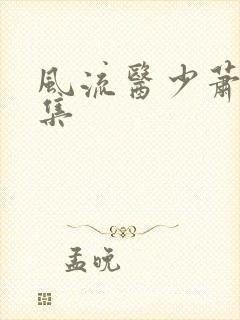 風流醫少蕭
集
孟晚